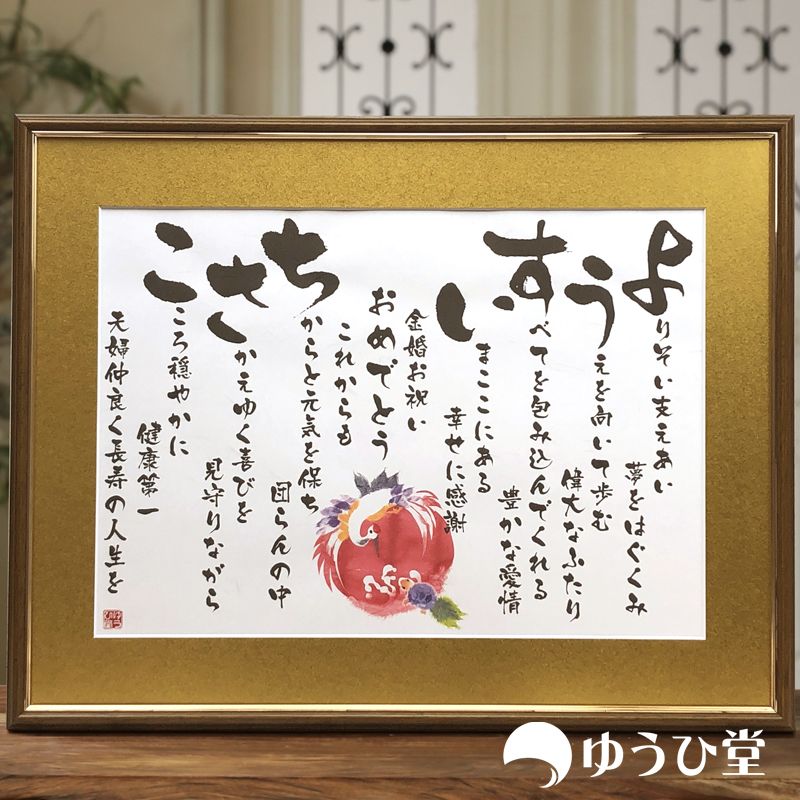 よりそい支えあい
夢をはぐくみ
うえを向いて歩む
偉大なふたり
すべてを包み込んでくれる
豊かな愛情
いまここにある
幸せに感謝
金婚お祝い
おめでとう
これからも
ちからと元気を保ち
団らんの中
さかえゆく喜びを
見守りながら
こころ穏やかに
健康第一
夫婦仲良く長寿の人生を
ゆうひ堂